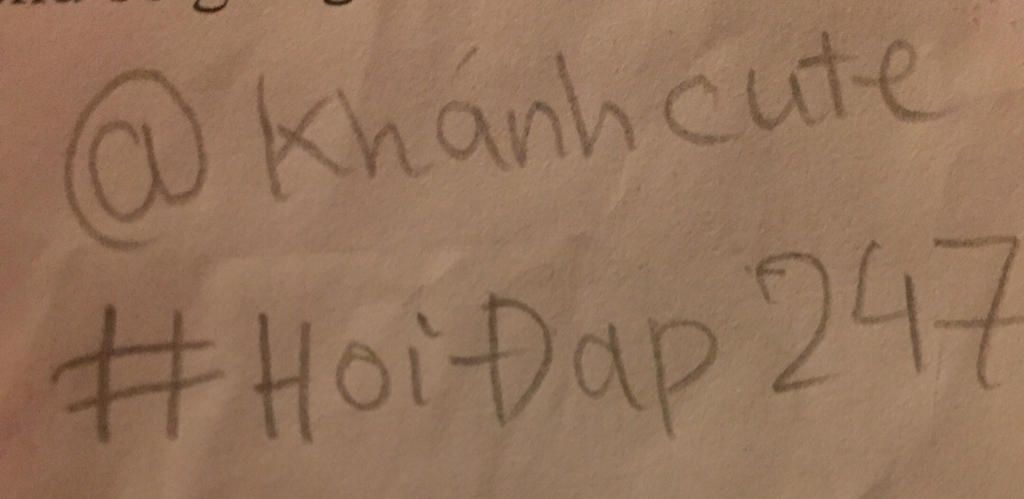 @Khánhcute
#HoiĐap247